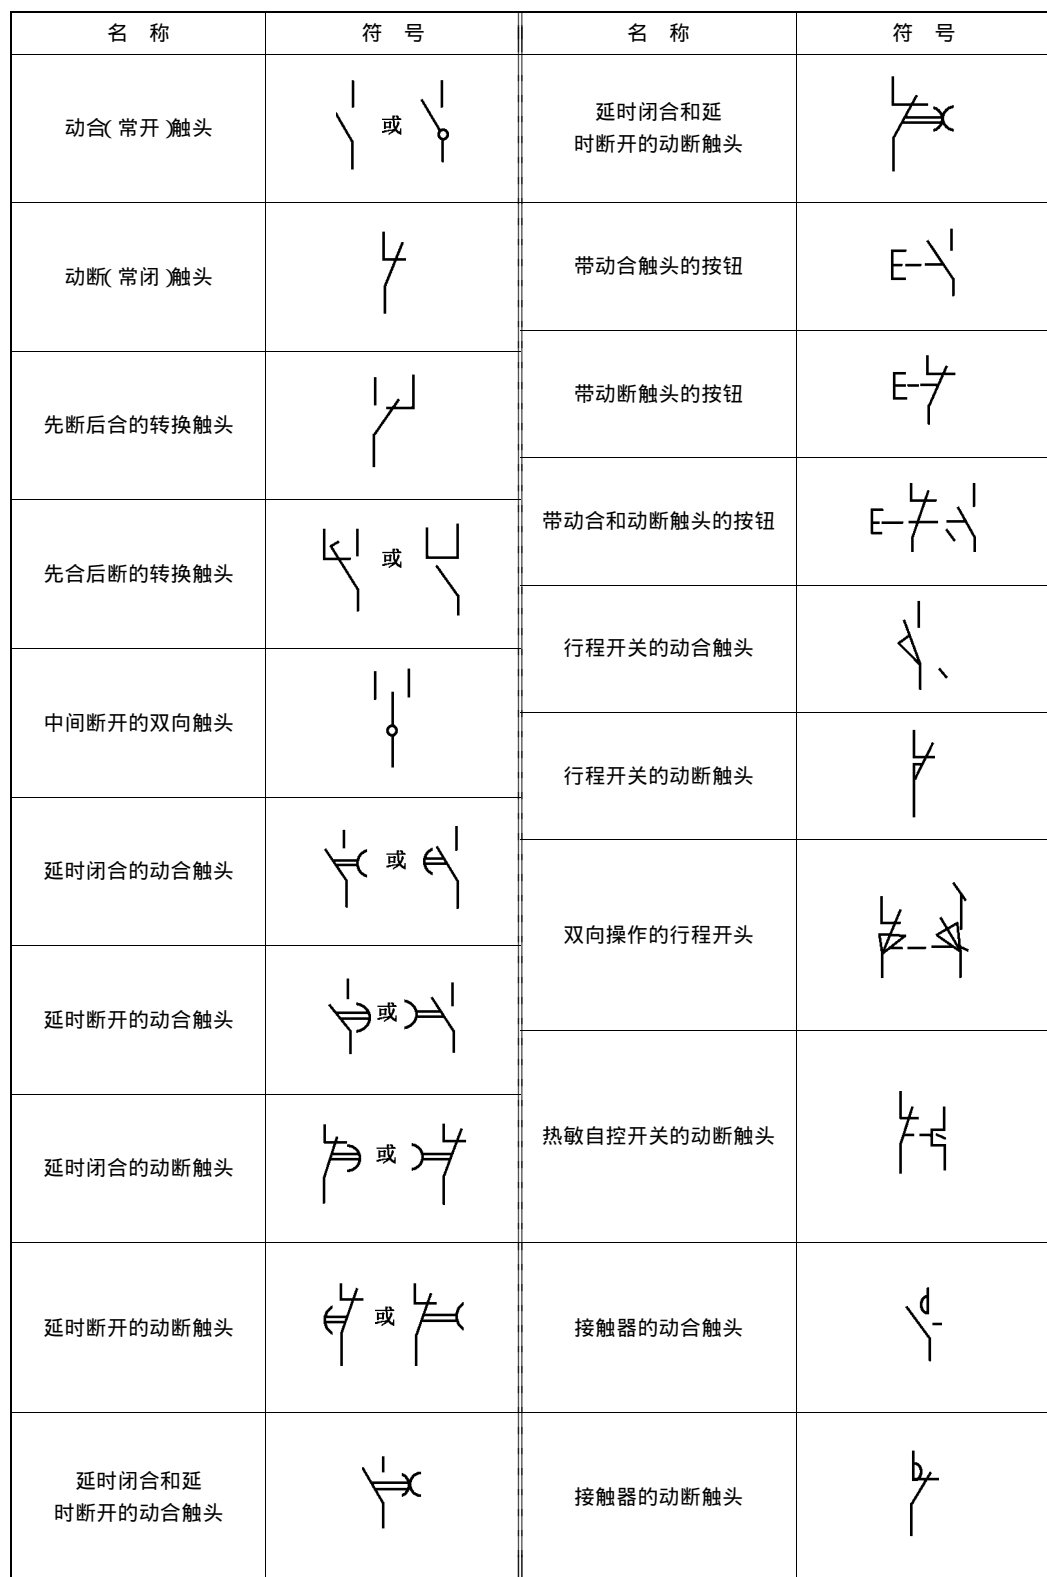 名 称
符 号
名 称
符 号
动合(常开)触头
或
动断(常闭)触头
先断后合的转换触头
先合后断的转换触头
或
中间断开的双向触头
延时闭合的动合触头
或
延时断开的动合触头
或
延时闭合的动断触头
或
延时断开的动断触头
或
延时闭合和延
时断开的动合触头
延时闭合和延
时断开的动断触头
带动合触头的按钮
带动断触头的按钮
带动合和动断触头的按钮
行程开关的动合触头
行程开关的动断触头
双向操作的行程开头
热敏自控开关的动断触头
接触器的动合触头
接触器的动断触头